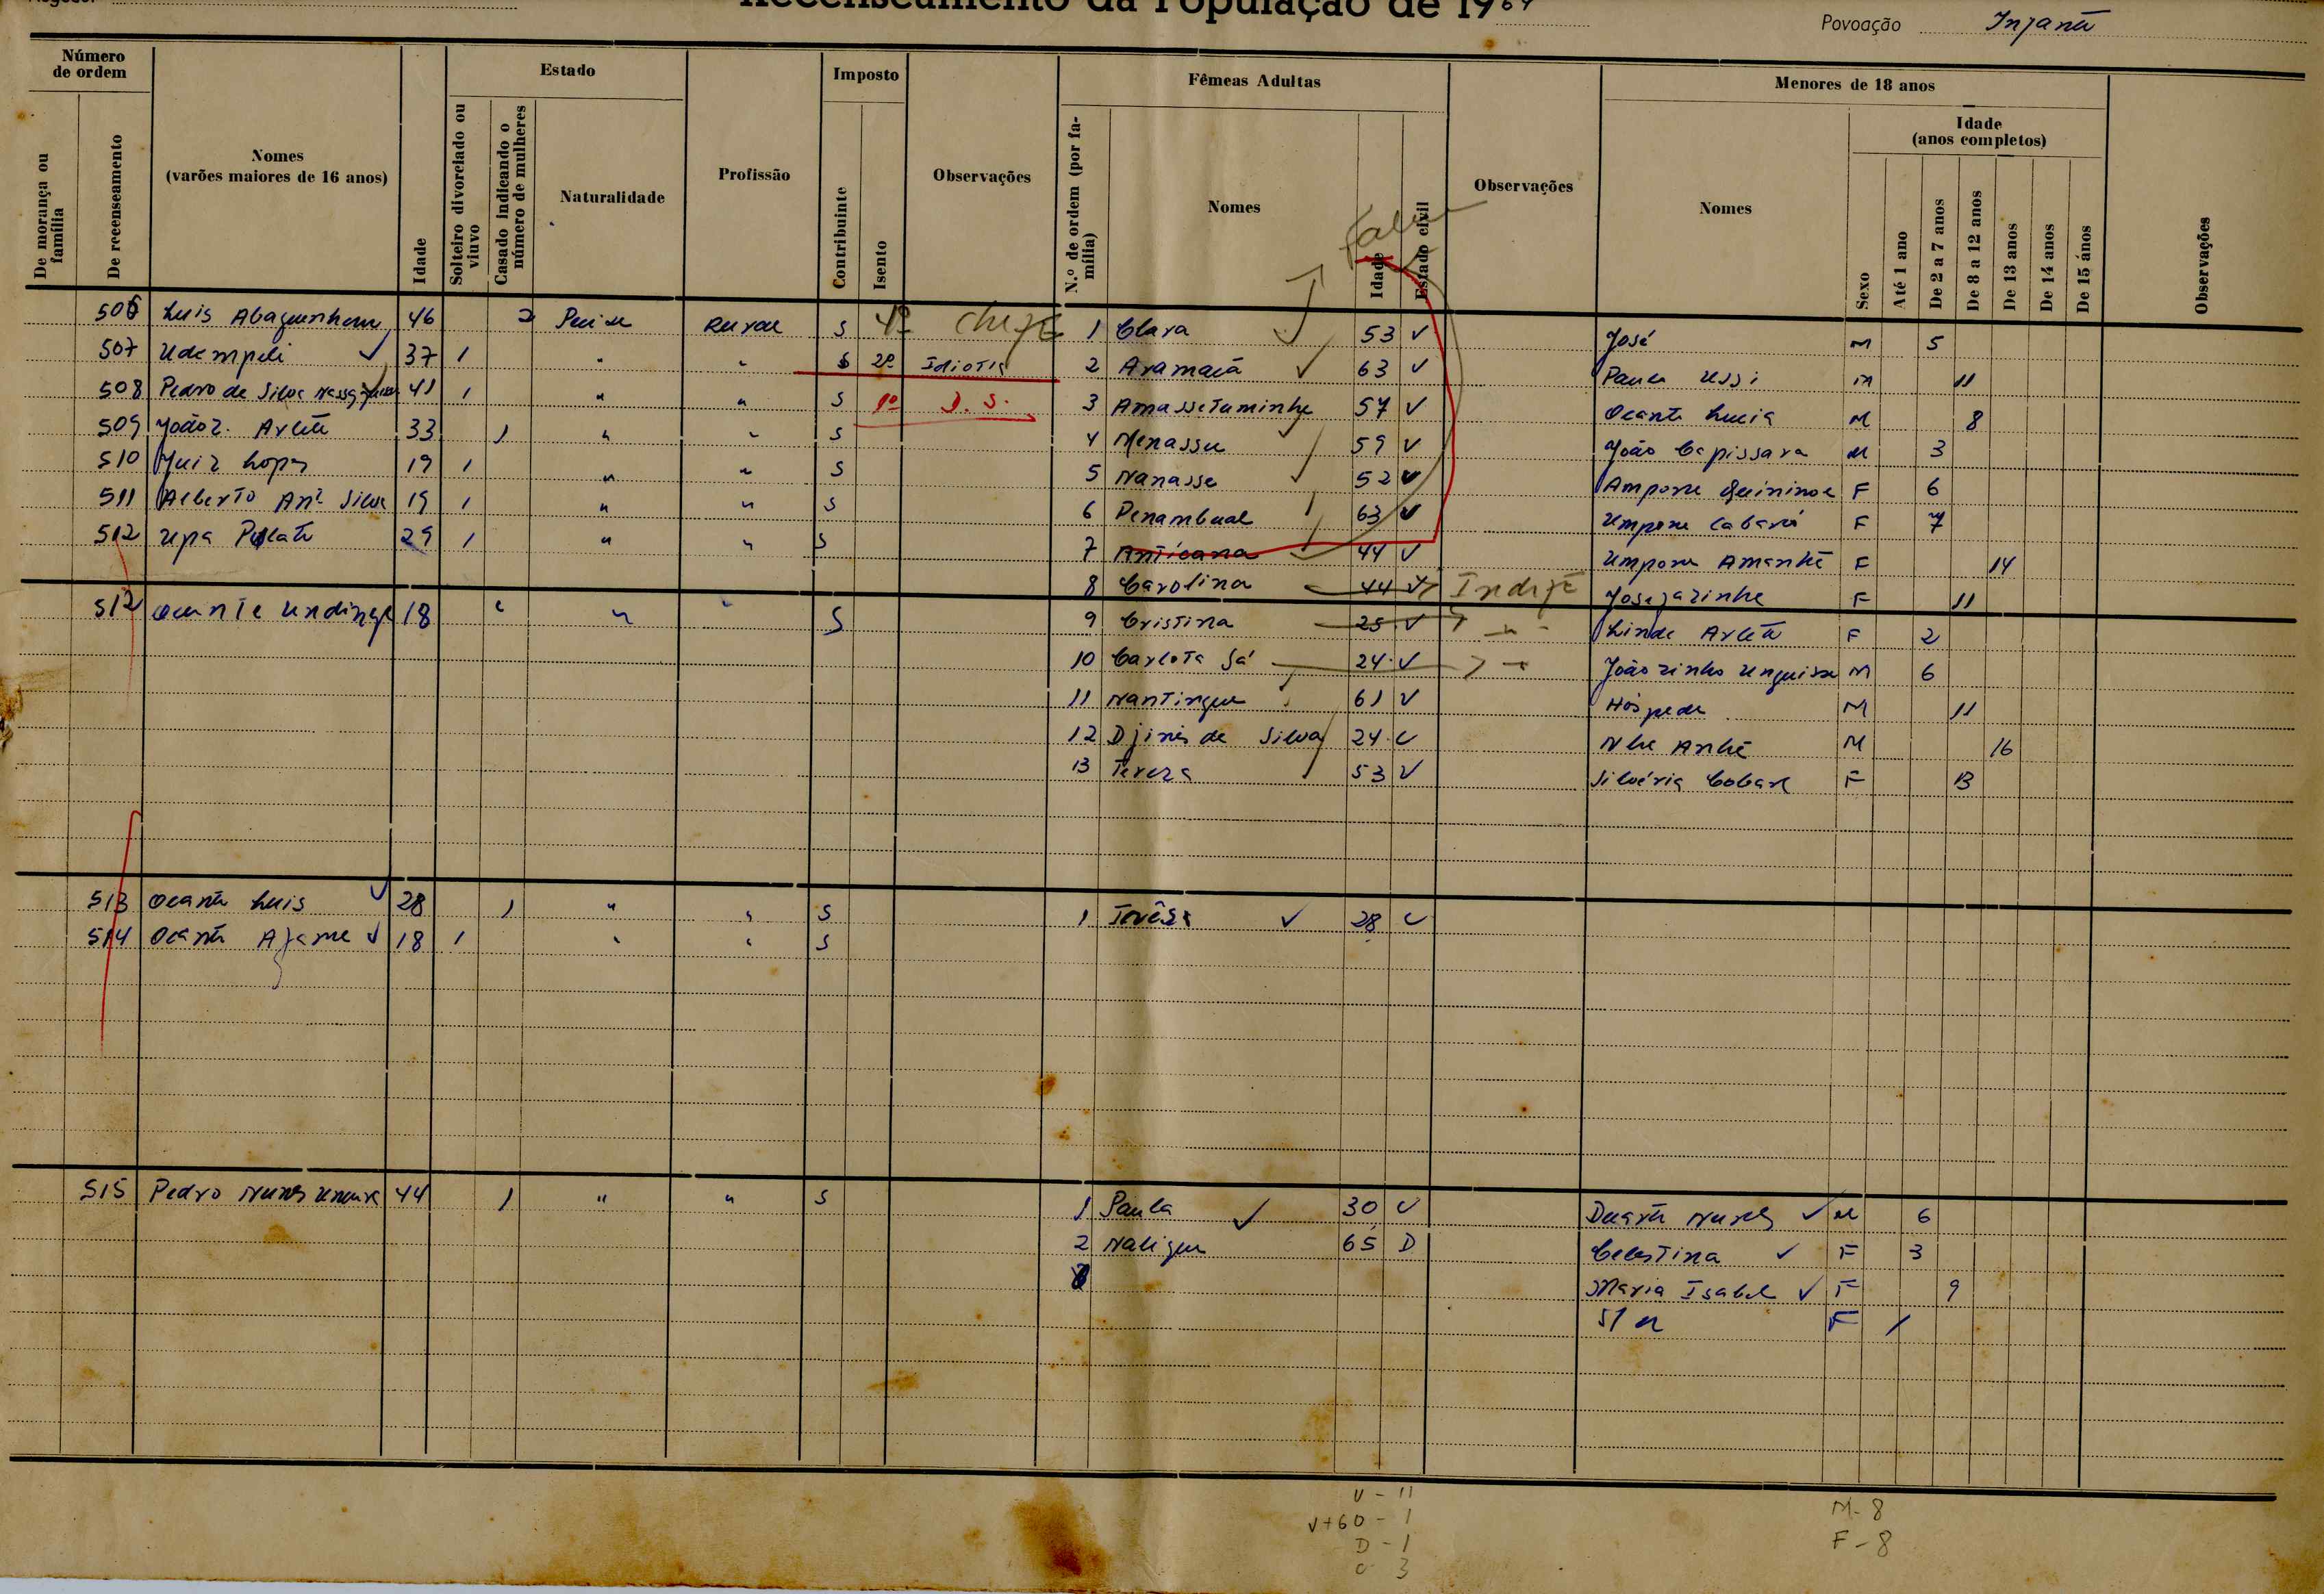 Recenseamento da População de 1964
Povoação Injanã
Número de ordem
De morança ou família
De recenseamento
Nomes
(varões maiores de 16 anos)
Idade
Estado
Solteiro divorciado ou viuvo
Casado indicando o número de mulheres
Naturalidade
Profissão
Imposto
Contribuinte
Isento
Observações
Fêmeas Adultas
N.º de ordem (por família)
Nomes
Idade
Estado civil
Observações
Menores de 18 anos
Nomes
Sexo
Idade
(anos completos)
Até 1 ano
De 2 a 7 anos
De 8 a 12 anos
De 13 anos
De 14 anos
De 15 ános
Observações
506 Luis 46 2 Rural S 4º chefe 1 Clara 53 V José M 5
507 Udempeli 37 1 " " S 2º Idiota 2 Aramacã 63 V Paulo Ussi M 11
508 Pedro da Silva 41 1 " " S 1º S. S. 3 Amassetuminhe 57 V Ocante Lucia M 8
509 João Z. Arletã 33 1 " " S 4 Menassu 59 V João Capissara M 3
510 Luiz Lopes 19 1 " " S 5 Nanasse 52 V Ampone F 6
511 Alberto Anº Silva 19 1 " " S 6 Penambual 63 V Umpone F 7
512 Upa 29 1 " " S 7 Anticana 44 V Umpone Amanhã F 14
8 Carolina 44 V Josezarinha F 11
512 Ocante Undinga 18 " " " S 9 Cristina 25 V " Linda Arletã F 2
10 Carlota Sá 24 V " Joãozinho M 6
11 Nantingue 61 V Hóspede M 11
12 Djinés da Silva 24 C Nhe Anhã M 16
13 Tereza 53 V Silvéria F 13
513 Ocante Luis 28 1 " " S 1 28 C
514 Ocante 18 1 " " S
515 Pedro Nunes 44 1 " " S 1 Paula 30 C Duarte Nunes M 6
2 Naligue 65 D Celestina F 3
Maria Isabel F 9
S/N F /
V - 11
V+60 - 1
D - 1
C 3
M - 8
F - 8